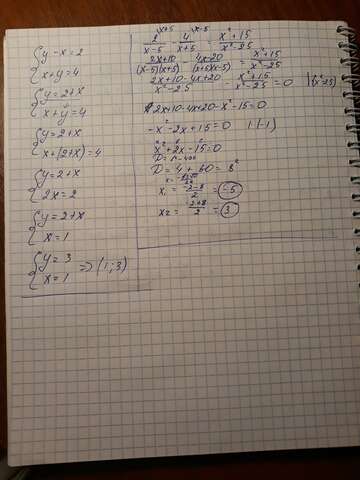 {y-x=2
{x+y=4
{y=2+x
{x+y=4
{y=2+x
{x+(2+x)=4
{y=2+x
{2x=2
{y=2+x
{x=1
{y=3
{x=1 => (1;3)
x+5 x-5
2/(x-5) - 4/(x+5) = (x²+15)/(x²-25)
(2x+10)/((x-5)(x+5)) - (4x-20)/((x+5)(x-5)) = (x²+15)/(x²-25)
(2x+10-4x+20)/(x²-25) - (x²+15)/(x²-25) = 0 |(x²-25)
2x+10-4x+20-x²-15=0
-x²-2x+15=0 |(-1)
x²+2x-15=0
D=4+60=8²
x₁=(-2-8)/2=-5
x₂=(-2+8)/2=3